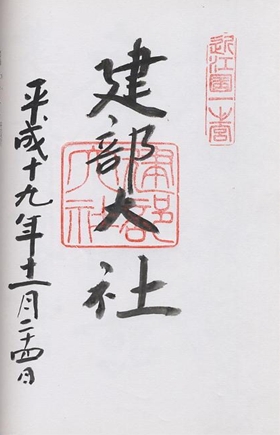 近江國一之宮
建部大社
建部大社
平成十九年十一月二十四日